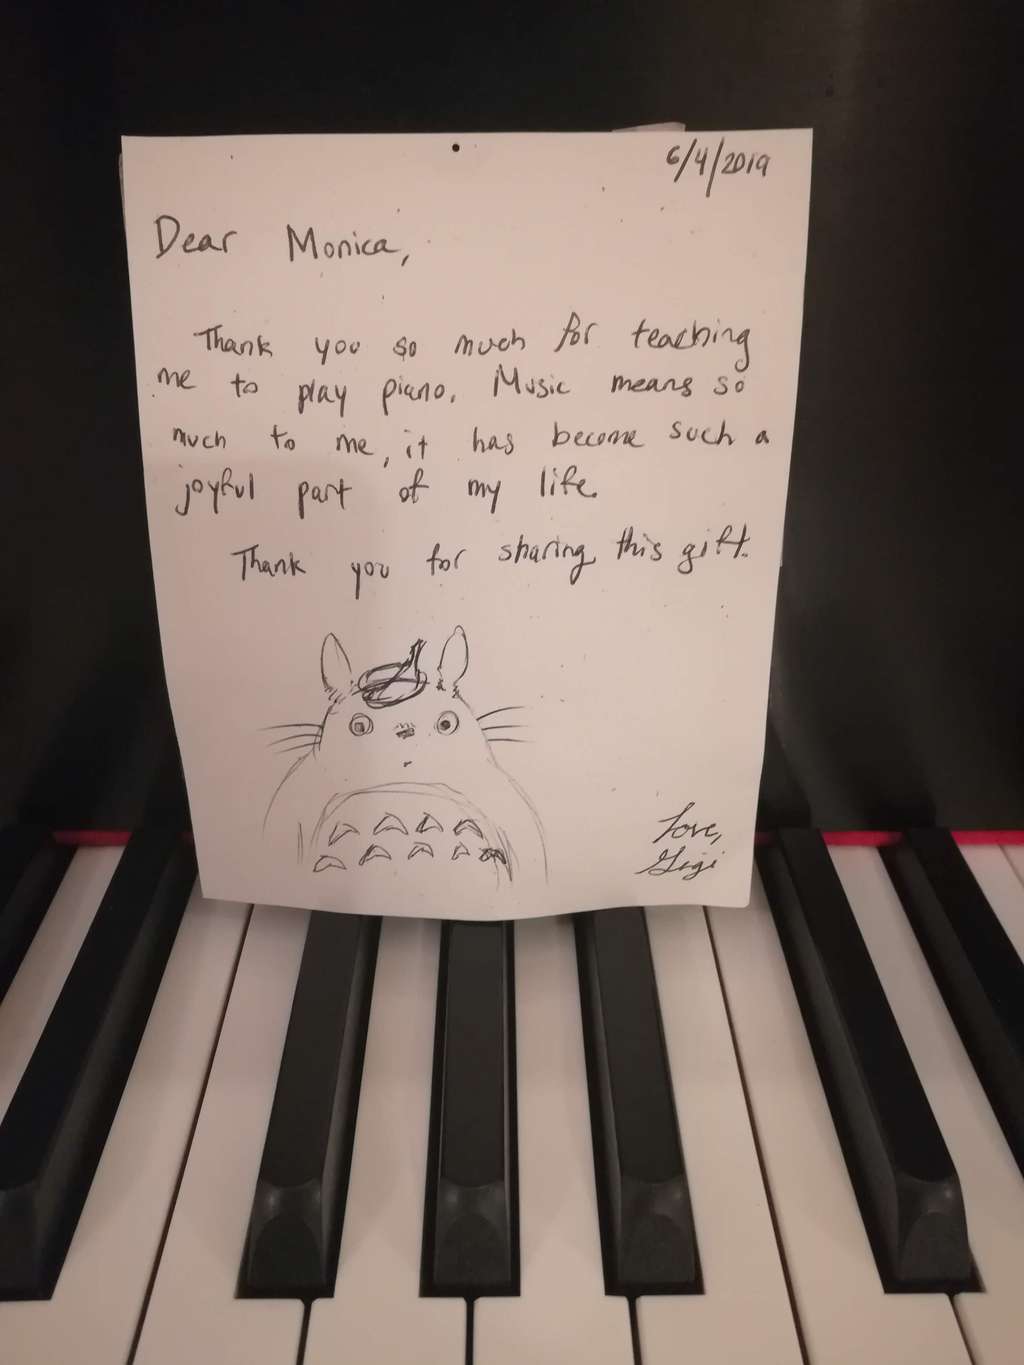 6/4/2019
Dear Monica,
Thank you so much for teaching
me to play piano. Music means so
much to me, it has become such a
joyful part of my life.
Thank you for sharing this gift.
Love,
Gigi